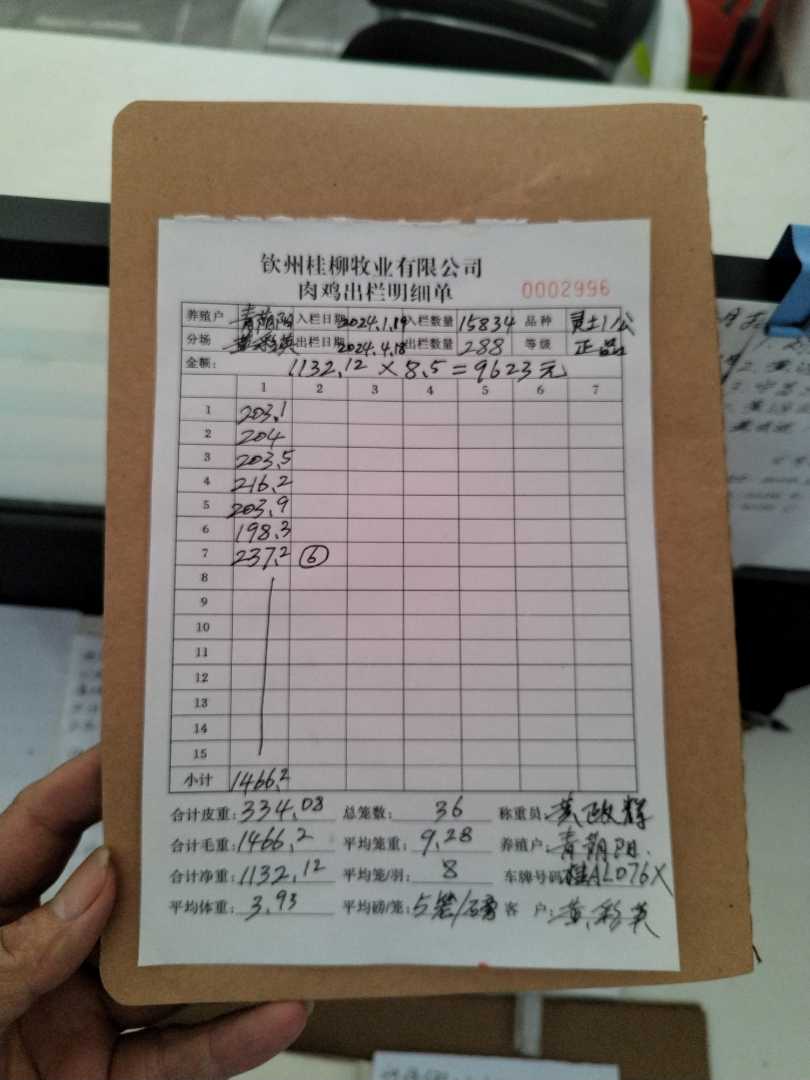 钦州桂柳牧业有限公司
肉鸡出栏明细单 0002996
养殖户 青 阳 入栏日期 2024.1.19 入栏数量 15834 品种 灵土1/公
分场 黄彩英 出栏日期 2024.4.18 出栏数量 288 等级 正品
金额: 1132.12 × 8.5 = 9623元
1 2 3 4 5 6 7
1 203.1
2 204
3 203.5
4 216.2
5 203.9
6 198.3
7 237.2 ⑥
8
9
10
11
12
13
14
15
小计 1466.2
合计皮重: 334.08 总笼数: 36 称重员: 黄 辉
合计毛重: 1466.2 平均笼重: 9.28 养殖户: 青 阳
合计净重: 1132.12 平均笼/羽: 8 车牌号码: 桂AL076X
平均体重: 3.93 平均磅/笼: 5笼/磅 客户: 黄彩英